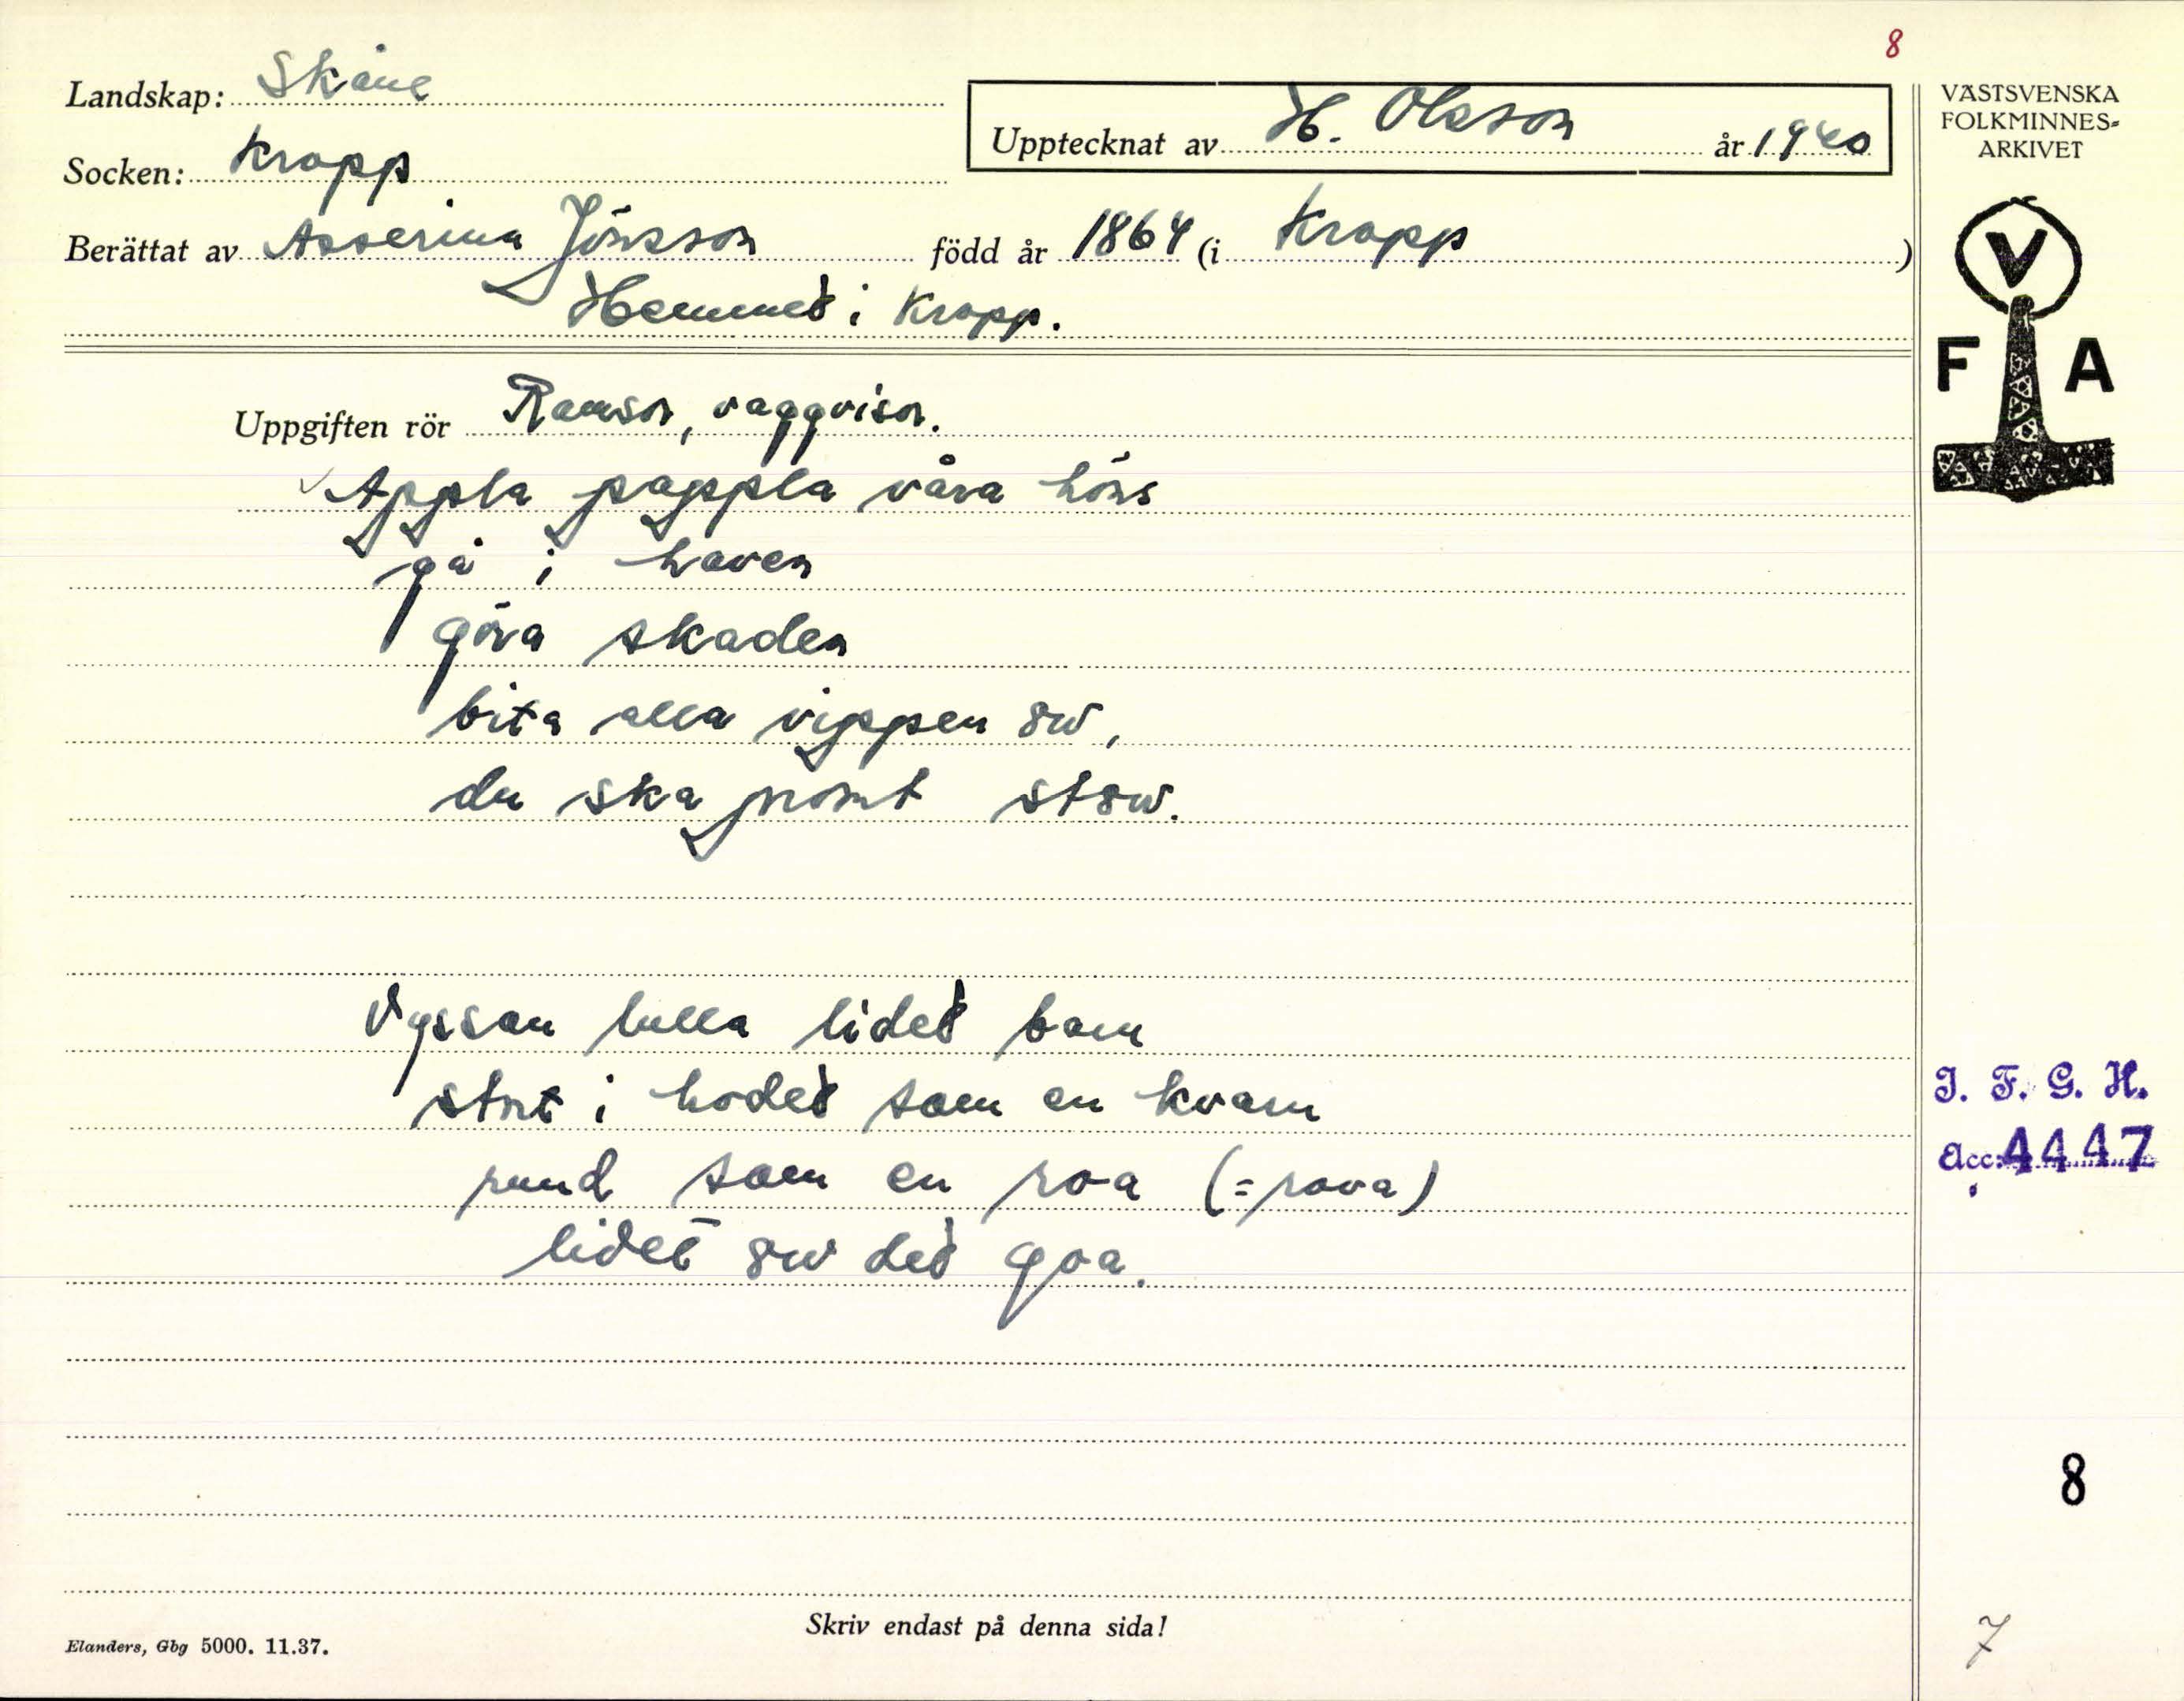 8
Landskap: Skåne
Upptecknat av H. Olsson år 1940
VÄSTSVENSKA
FOLKMINNES-
ARKIVET
Socken: Kropp
Berättat av Asserina Jönsson född år 1864 (i Kropp)
Hemmet i Kropp.
V
F A
Uppgiften rör Ramsor, vaggvisor.
Appla pappla våra höns
gå i haven
göra skaden
bita alla vippen
du ska
Vyssan lulla lidet barn
stort i hodet som en kvarn
rund som en roa (=rova)
lidet det goa.
I. F. G. H.
Acc: 4447
8
Skriv endast på denna sida!
Elanders, Gbg 5000. 11.37.
7